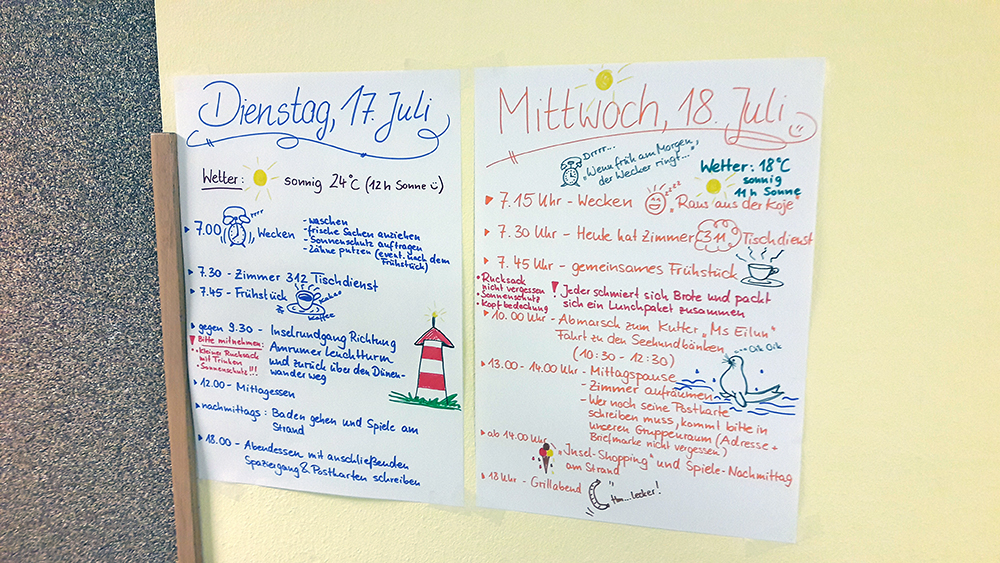 Dienstag, 17. Juli
Wetter: sonnig 24°C (12h Sonne)
7.00 Wecken
rrrr
- waschen
- frische Sachen anziehen
- Sonnenschutz auftragen
- Zähne putzen (event. nach dem
Frühstück)
7.30 - Zimmer 312 Tischdienst
7.45 - Frühstück
Kakao
Kaffee
gegen 9.30 - Inselrundgang Richtung
Amrumer Leuchtturm
und zurück über den Dünen-
wanderweg
! Bitte mitnehmen:
• kleiner Rucksack
mit Trinken
• Sonnenschutz!!!
12.00 - Mittagessen
nachmittags: Baden gehen und Spiele am
Strand
18.00 - Abendessen mit anschließenden
Spaziergang & Postkarten schreiben
Mittwoch, 18. Juli
Drrrr...
"Wenn früh am Morgen,
der Wecker ringt..."
Wetter: 18°C
sonnig
11h Sonne
7.15 Uhr - Wecken zzzz "Raus aus der Koje"
7.30 Uhr - Heute hat Zimmer 311 Tischdienst
7.45 Uhr - gemeinsames Frühstück
• Rucksack
nicht vergessen
• Sonnenschutz
• Kopfbedeckung
! Jeder schmiert sich Brote und packt
sich ein Lunchpaket zusammen
10.00 Uhr - Abmarsch zum Kutter "Ms Eilun"
Fahrt zu den Seehundbänken
(10:30 - 12:30)
...Oik Oik
13.00 - 14.00 Uhr - Mittagspause
- Zimmer aufräumen
- Wer noch seine Postkarte
schreiben muss, kommt bitte in
unseren Gruppenraum (Adresse +
Briefmarke nicht vergessen)
ab 14.00 Uhr
"Insel-Shopping" und Spiele-Nachmittag
am Strand
18 Uhr - Grillabend
Hm...lecker!